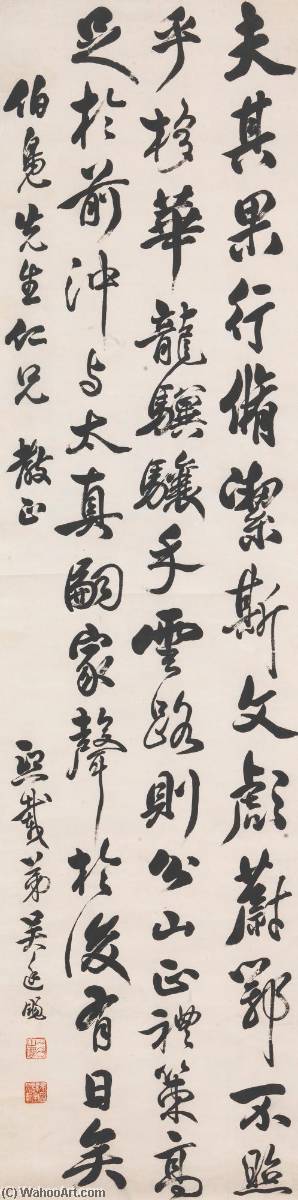 夫其果行脩潔斯文彪蔚鄂不照
乎栘華龍驥驤乎雲路則公山正禮策高
足於前沖与太真嗣家聲於後有日矣
伯鳧先生仁兄教正
熙載弟吳廷颺
(C) WahooArt.com